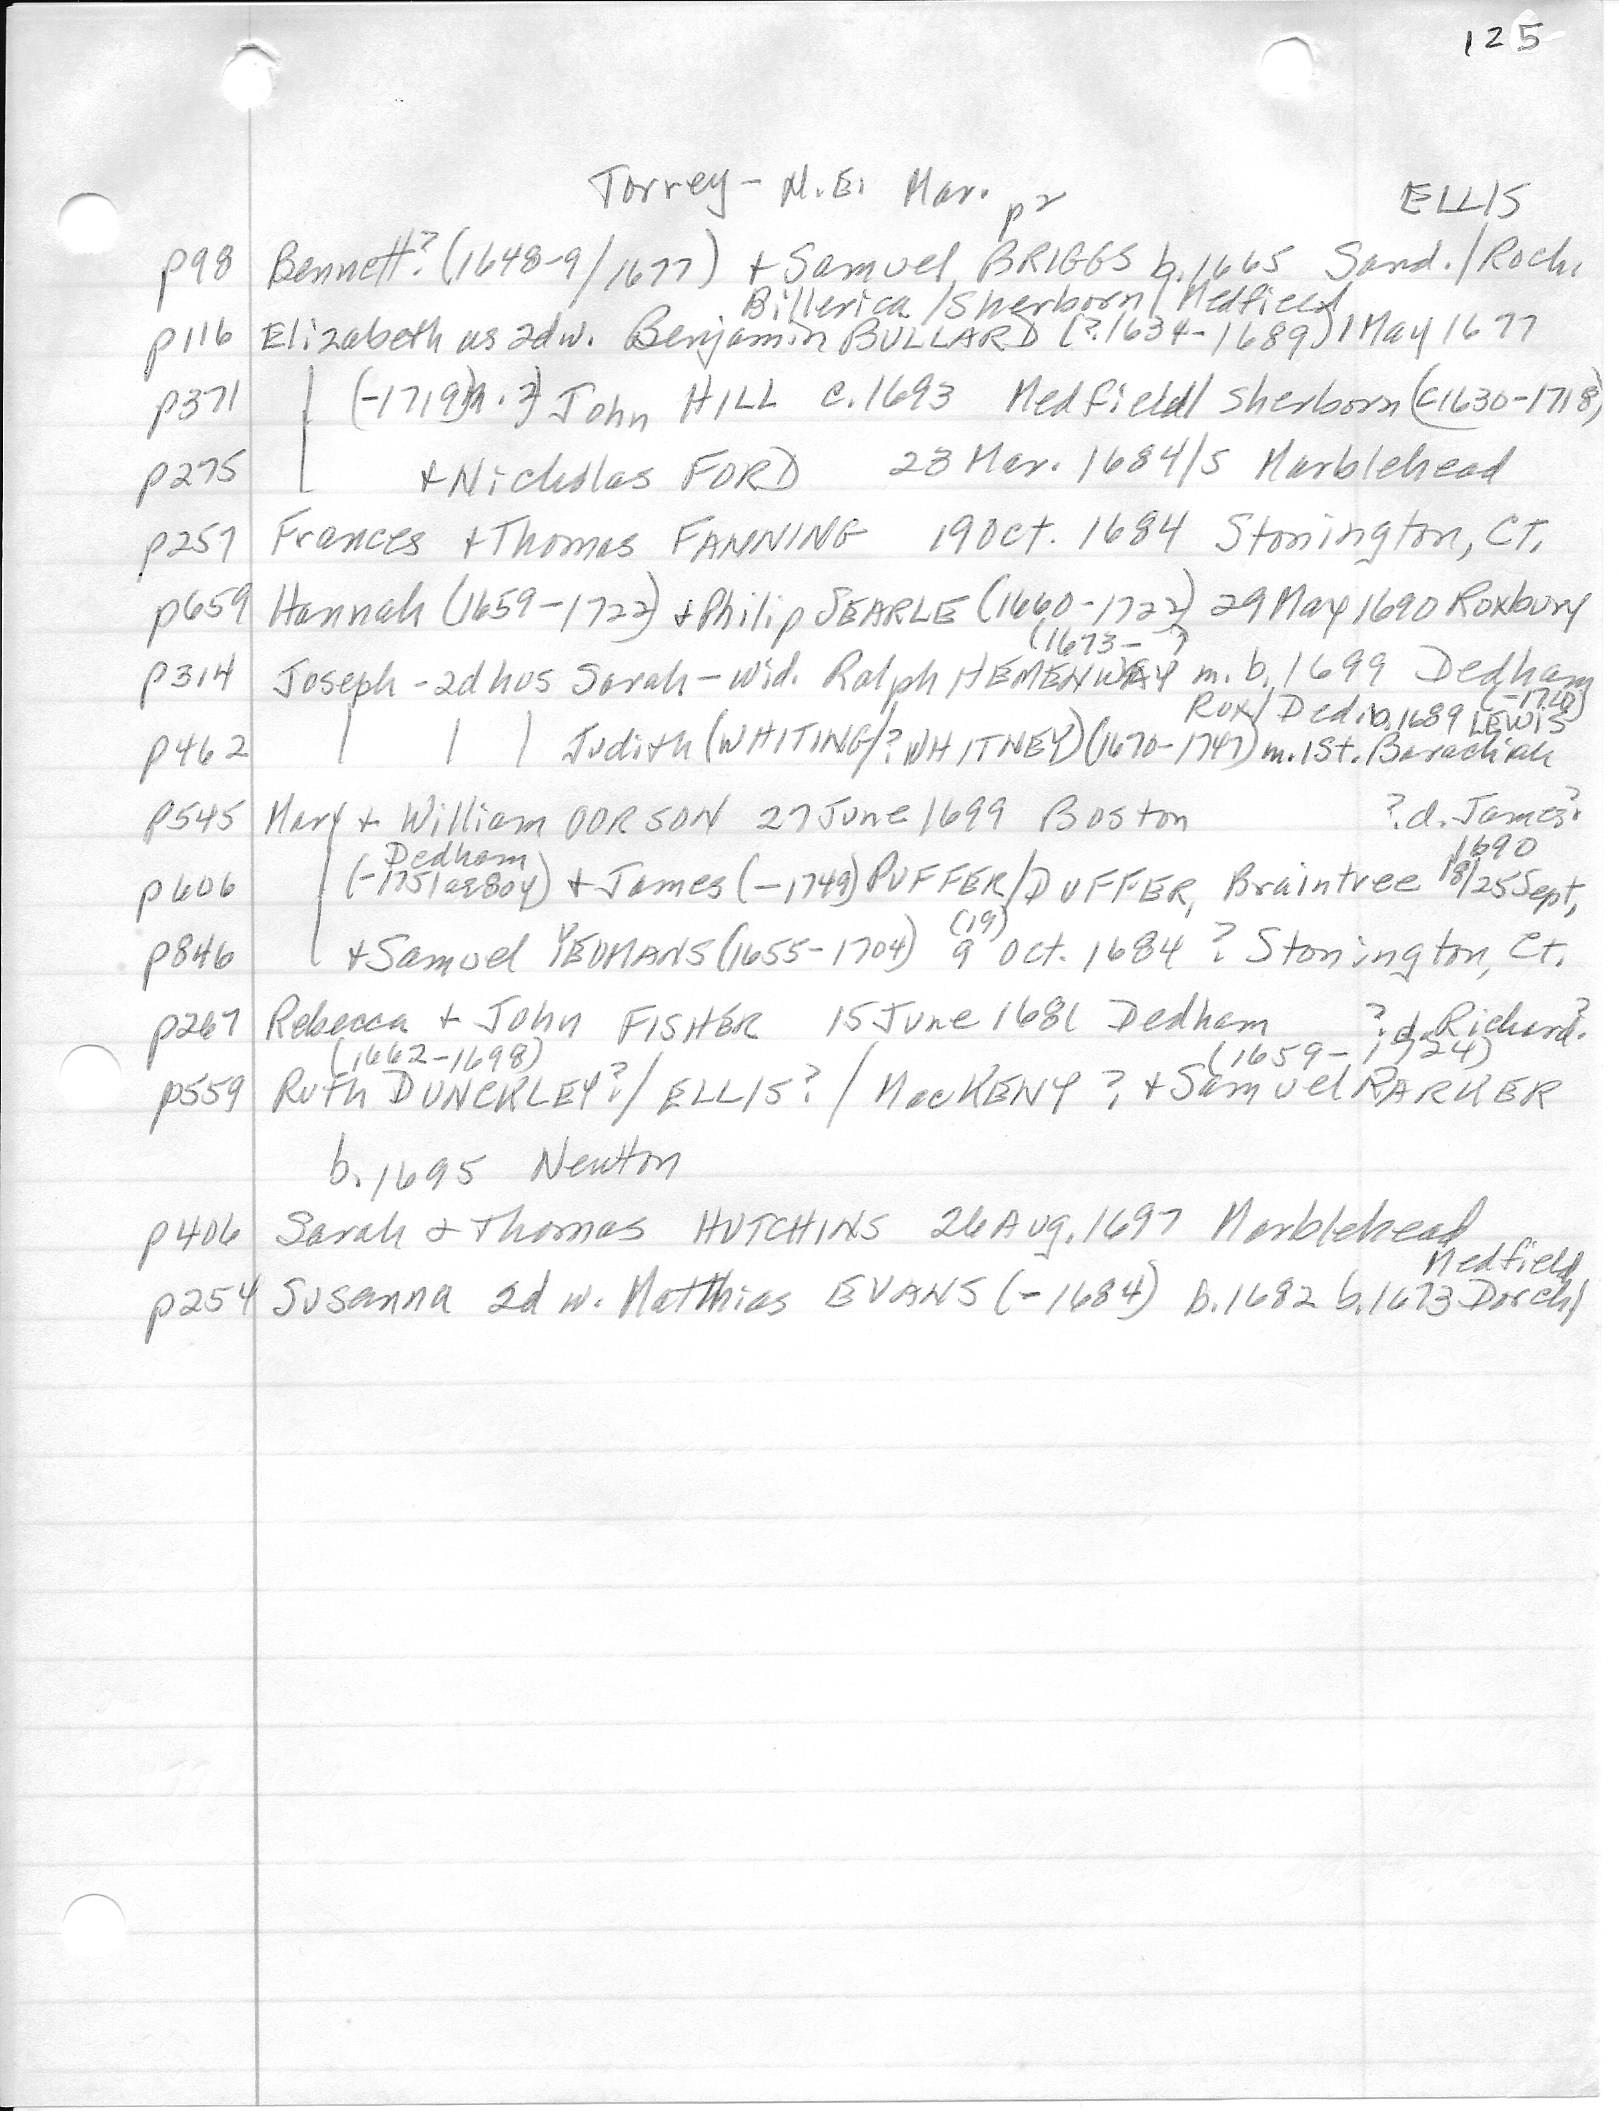 125
Torrey - N.E. Mar. p2 ELLIS
p98 Bennett? (1648-9/1677) + Samuel BRIGGS b. 1665 Sand./Roch.
Billerica/Sherborn/Medfield
p116 Elizabeth as 2d w. Benjamin BULLARD (?1634-1689) 1 May 1677
p371 (-1719) John HILL c. 1693 Medfield/Sherborn (c1630-1718)
p275 + Nicholas FORD 23 Mar. 1684/5 Marblehead
p257 Frances + Thomas FANNING 19 Oct. 1684 Stonington, CT.
p659 Hannah (1659-1722) + Philip SEARLE (1660-1722) 29 May 1690 Roxbury
(1673- ?
p314 Joseph - 2d hus Sarah - wid. Ralph HEMENWAY m. b. 1699 Dedham
Rox/Ded. b. 1689 LEWIS (-1710)
p462 | | | Judith (WHITING/?WHITNEY) (1670-1747) m. 1st. Barachiah
p545 Mary + William ORSON 27 June 1699 Boston ?d. James?
Dedham 1690
p606 (-1751 ae 80y) + James (-1749) PUFFER/DUFFER, Braintree 18/25 Sept,
(19)
p846 + Samuel YEOMANS (1655-1704) 9 Oct. 1684 ? Stonington, Ct.
p267 Rebecca + John FISHER 15 June 1681 Dedham ?d. Richard?
(1662-1698) (1659-1724)
p559 Ruth DUNCKLEY?/ELLIS?/MacKENY? + Samuel PARKER
b. 1695 Newton
p406 Sarah & Thomas HUTCHINS 26 Aug. 1697 Marblehead
Medfield
p254 Susanna 2d w. Matthias EVANS (-1684) b. 1682 b. 1673 Dorch/